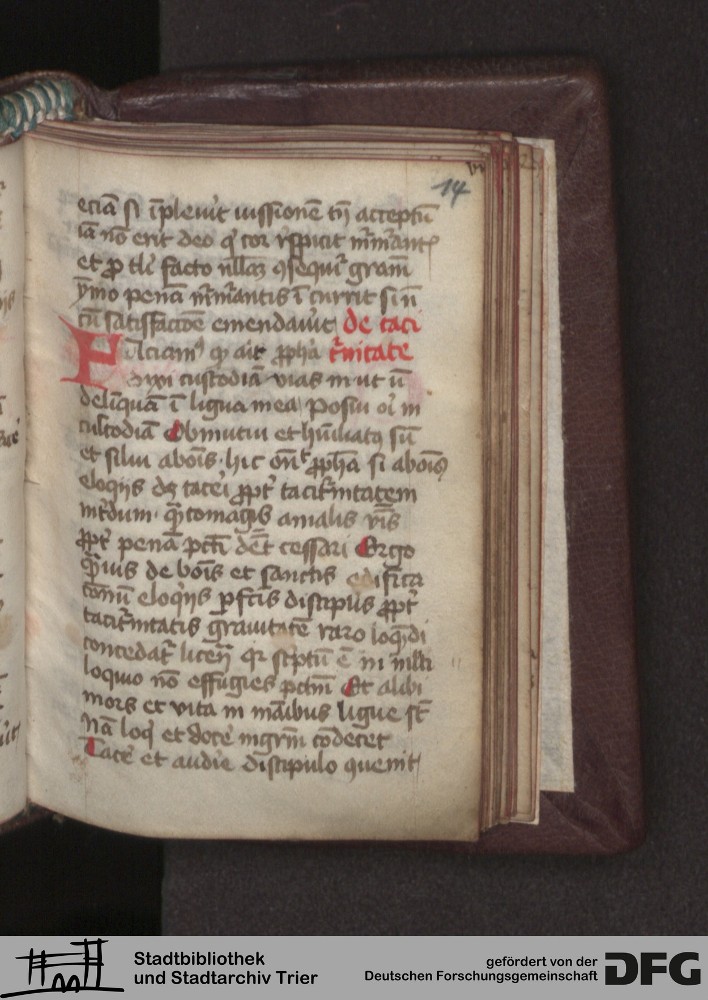 14
eciā si īpleuīt iussionē tn̄ acceptū
iā nō erit deo qͥ cor rͤspicit mͬmͬantꝭ
et ꝓ tli facto nllāꝫ ꝯsequiͬ grām
ymo penā mͬmͬantis īcurrit si n̄
cū satisfactōe emendauīt de taci
Faciamꝰ qͩ ait ꝓpha tͬnitate
Dixi custodiā vias m ut n̄
delīquā ī ligua mea Posui oi m
custodiā Obmutui et hūiliatꝰ sū
et silui abois hic on̄t ꝓpha si abois
eloqͥis dꝫ taceͥ ꝓptͬ tacitͬnitatem
intͬdum qͣntomagis amalis vͬis
ꝓptͬ penā pcti dēt cessari Ergo
qͣmis de bois et sanctis edifica
cōnū eloqͥis ꝑfctis discipͥlis ꝓptͬ
tacitͬnitatis grauitatē raro loqͤdi
concedatͬ licen qͬ sc̄ptū ē in mlti
loquio nō effugies pctm̄ Et alibi
mors et vita in māibus ligue st̄
Nā loqͥ et doceͤ mgrm̄ cōdecet
Taceͤ et audiͤe discipulo quenit
Stadtbibliothek
und Stadtarchiv Trier
gefördert von der
Deutschen Forschungsgemeinschaft
DFG